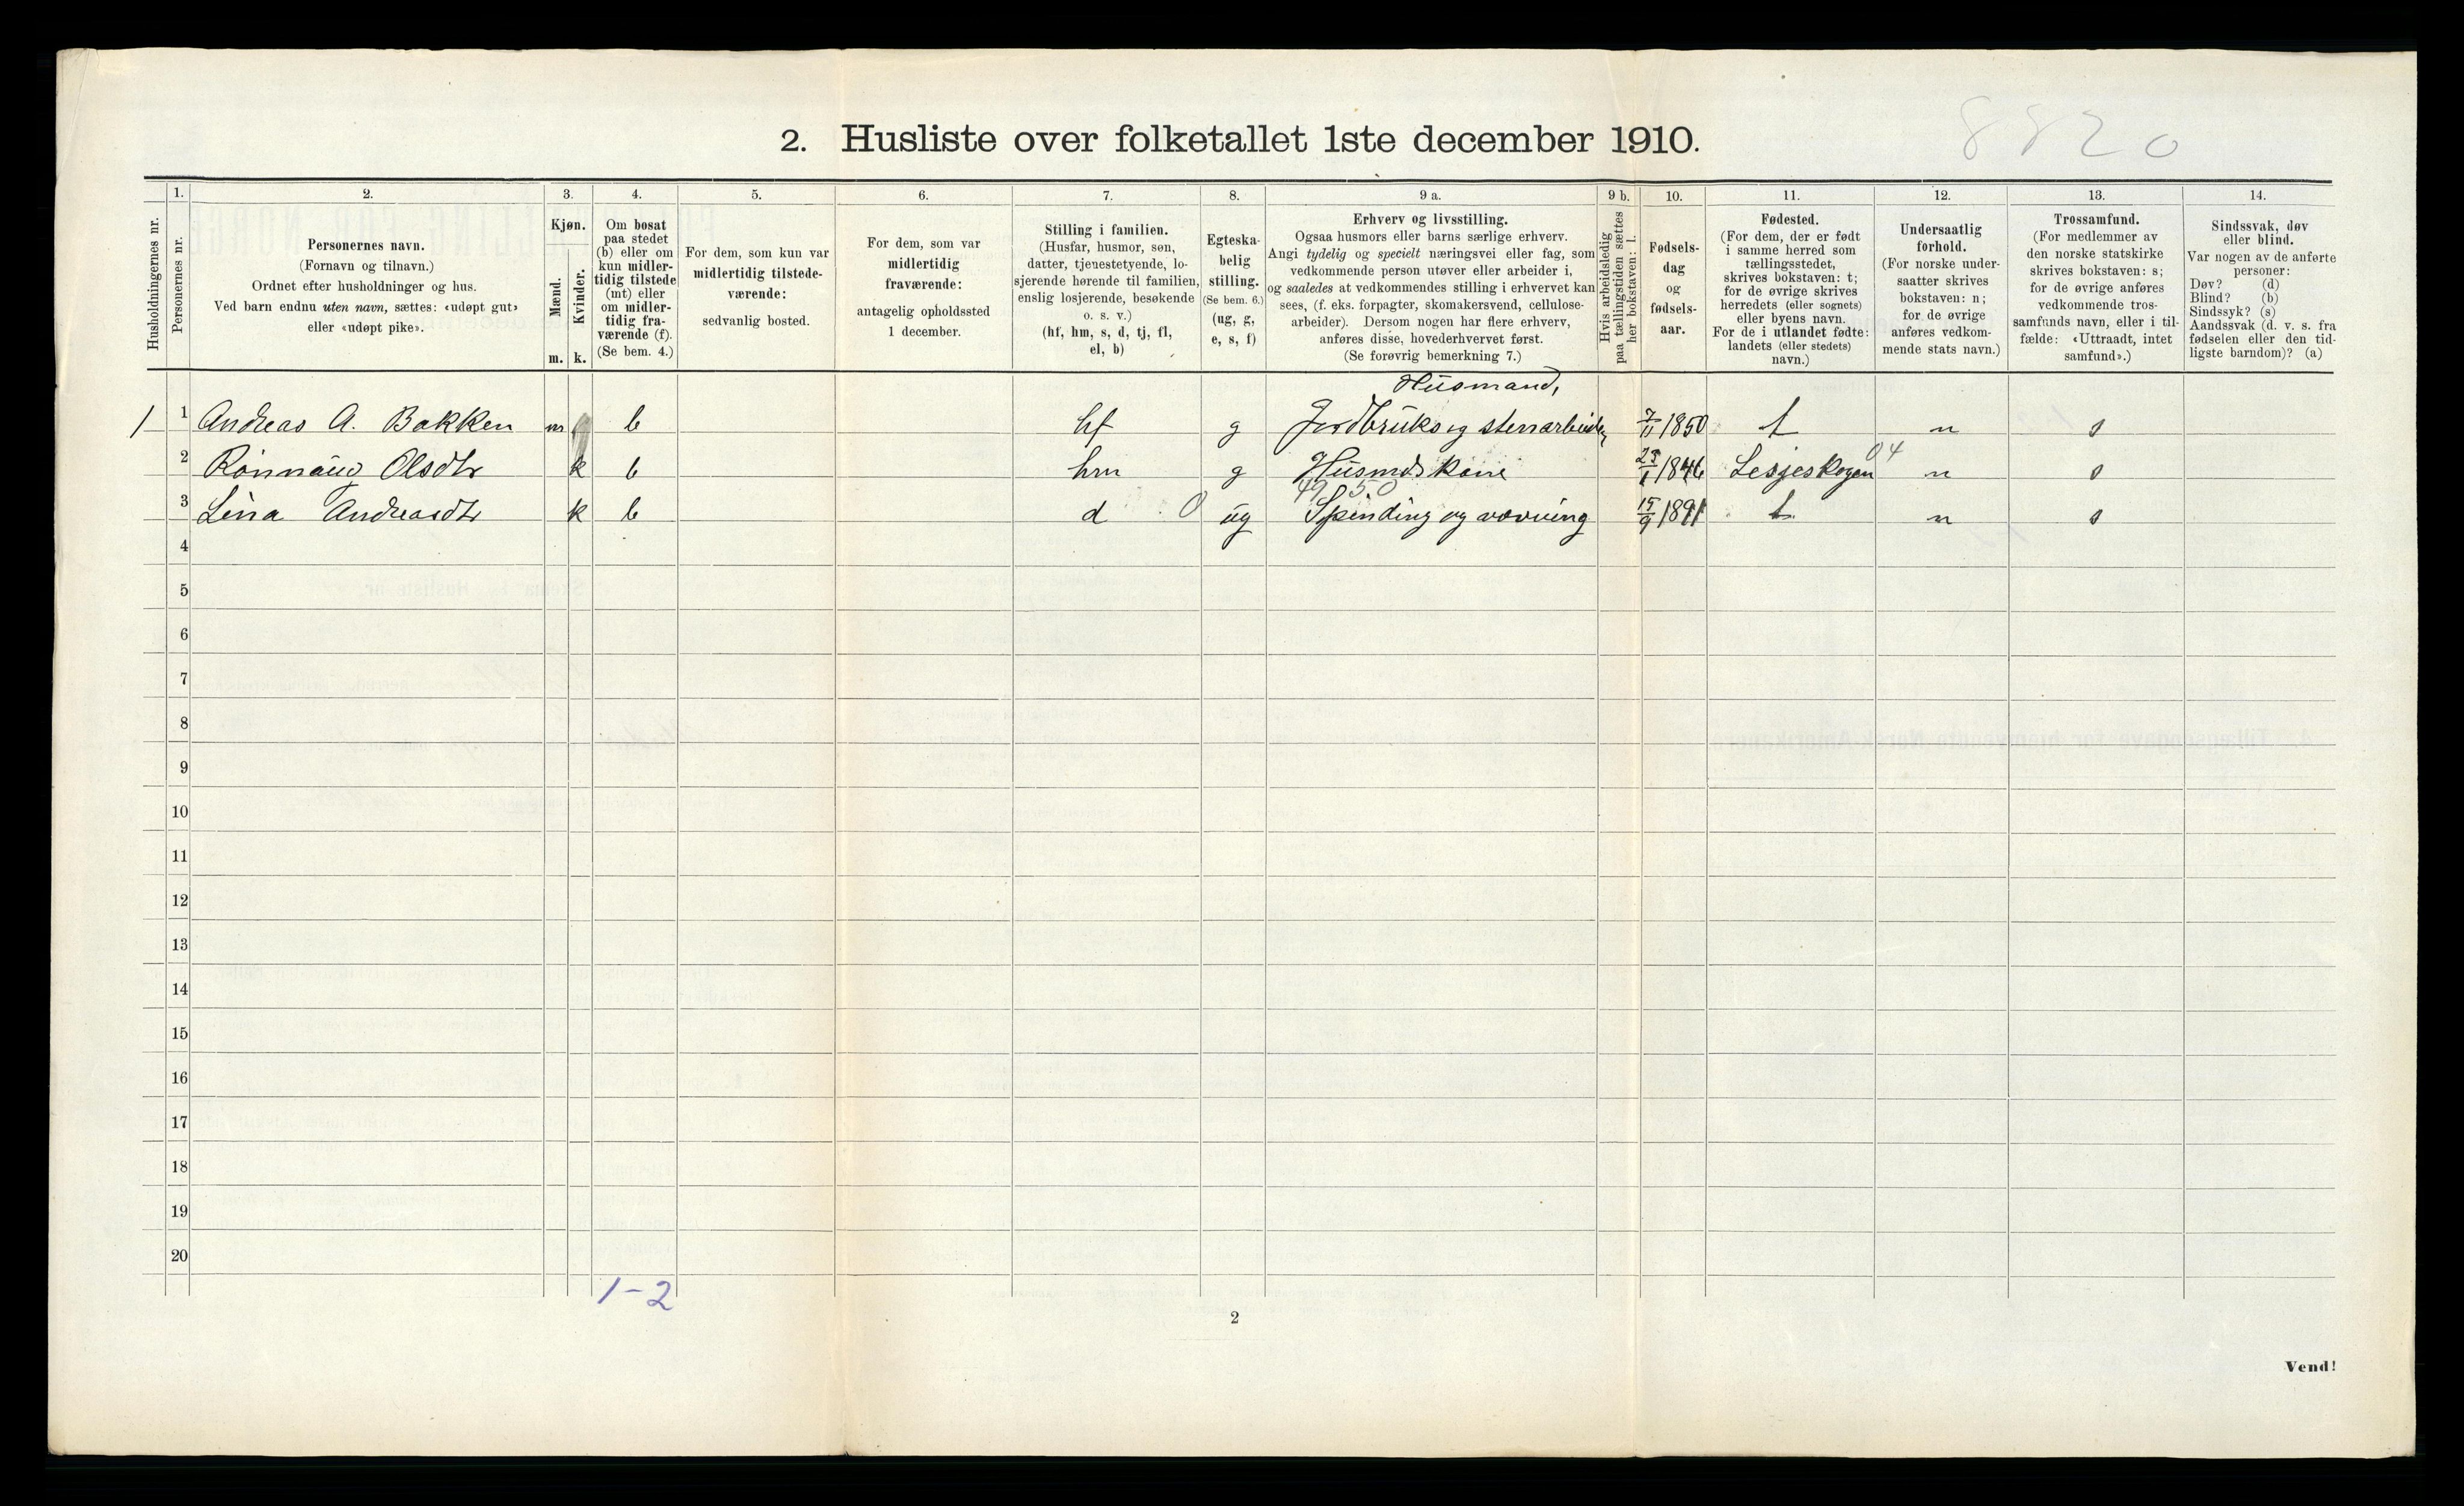 8820
2. Husliste over folketallet 1ste december 1910.
Husholdningernes nr.
1.
Personernes nr.
2.
Personernes navn.
(Fornavn og tilnavn.)
Ordnet efter husholdninger og hus.
Ved barn endnu uten navn, sættes: «udøpt gut»
eller «udøpt pike».
3.
Kjøn.
Mænd.
Kvinder.
m. k.
4.
Om bosat
paa stedet
(b) eller om
kun midler-
tidig tilstede
(mt) eller
om midler-
tidig fra-
værende (f).
(Se bem. 4.)
5.
For dem, som kun var
midlertidig tilstede-
værende:
sedvanlig bosted.
6.
For dem, som var
midlertidig
fraværende:
antagelig opholdssted
1 december.
7.
Stilling i familien.
(Husfar, husmor, søn,
datter, tjenestetyende, lo-
sjerende hørende til familien,
enslig losjerende, besøkende
o. s. v.)
(hf, hm, s, d, tj, fl,
el, b)
8.
Egteska-
belig
stilling.
(Se bem. 6.)
(ug, g,
e, s, f)
9 a.
Erhverv og livsstilling.
Ogsaa husmors eller barns særlige erhverv.
Angi tydelig og specielt næringsvei eller fag, som
vedkommende person utøver eller arbeider i,
og saaledes at vedkommendes stilling i erhvervet kan
sees, (f. eks. forpagter, skomakersvend, cellulose-
arbeider). Dersom nogen har flere erhverv,
anføres disse, hovederhvervet først.
(Se forøvrig bemerkning 7.)
9 b.
Hvis arbeidsledig
paa tællingstiden sættes
her bokstaven: l.
10.
Fødsels-
dag
og
fødsels-
aar.
11.
Fødested.
(For dem, der er født
i samme herred som
tællingsstedet,
skrives bokstaven: t;
for de øvrige skrives
herredets (eller sognets)
eller byens navn.
For de i utlandet fødte:
landets (eller stedets)
navn.)
12.
Undersaatlig
forhold.
(For norske under-
saatter skrives
bokstaven: n;
for de øvrige
anføres vedkom-
mende stats navn.)
13.
Trossamfund.
(For medlemmer av
den norske statskirke
skrives bokstaven: s;
for de øvrige anføres
vedkommende tros-
samfunds navn, eller i til-
fælde: «Uttraadt, intet
samfund».)
14.
Sindssvak, døv
eller blind.
Var nogen av de anførte
personer:
Døv? (d)
Blind? (b)
Sindssyk? (s)
Aandssvak (d. v. s. fra
fødselen eller den tid-
ligste barndom)? (a)
Husmand,
1 1 Andreas A. Bakken m b hf g Jordbruk og stenarbeider 7/11 1850 t n s
04
2 Rønnaug Olsdtr k b hm g Husmds kone 25/1 1846 Lesjeskogen n s
49 50
3 Lina Andreasdtr k b d 0 ug Spinding og vævning 15/9 1891 t n s
4
5
6
7
8
9
10
11
12
13
14
15
16
17
18
19
20
1-2
2
Vend!